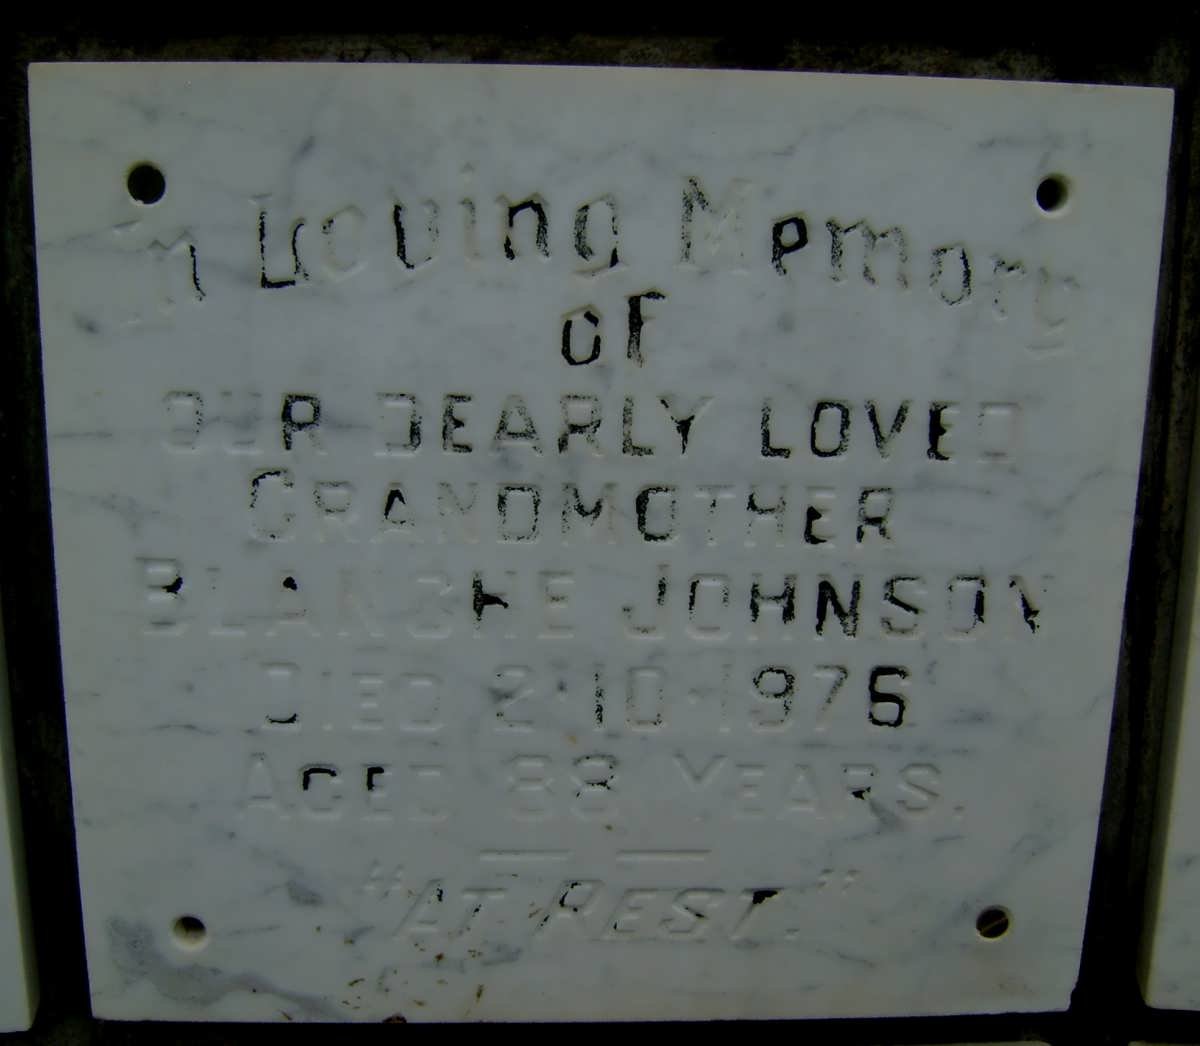 In Loving Memory
OF
OUR DEARLY LOVED
GRANDMOTHER
BLANCHE JOHNSON
DIED 2·10·1976
AGED 88 YEARS.
"AT REST."